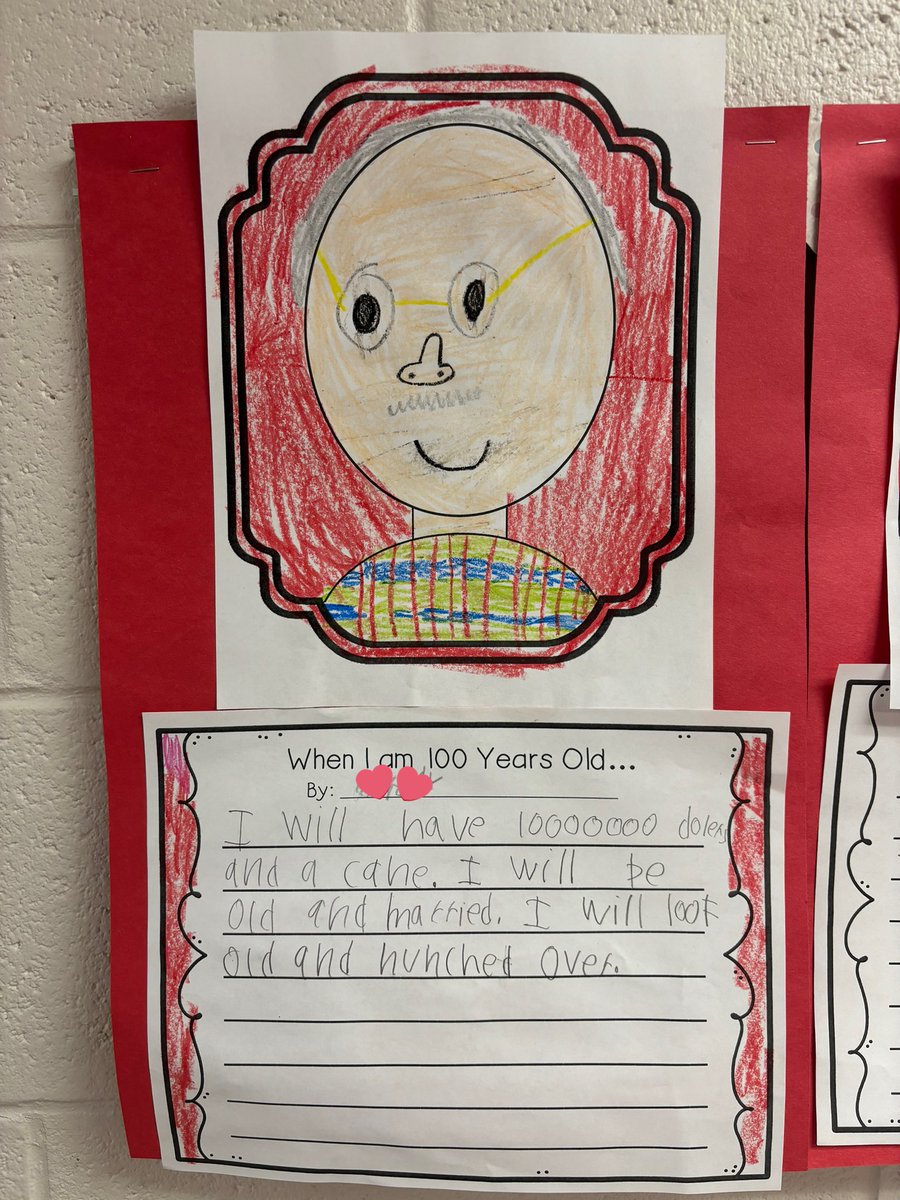 When I am 100 Years Old...
By:
I will have 10000000 dolers
and a cane. I will be
old and married. I will look
old and hunched over.